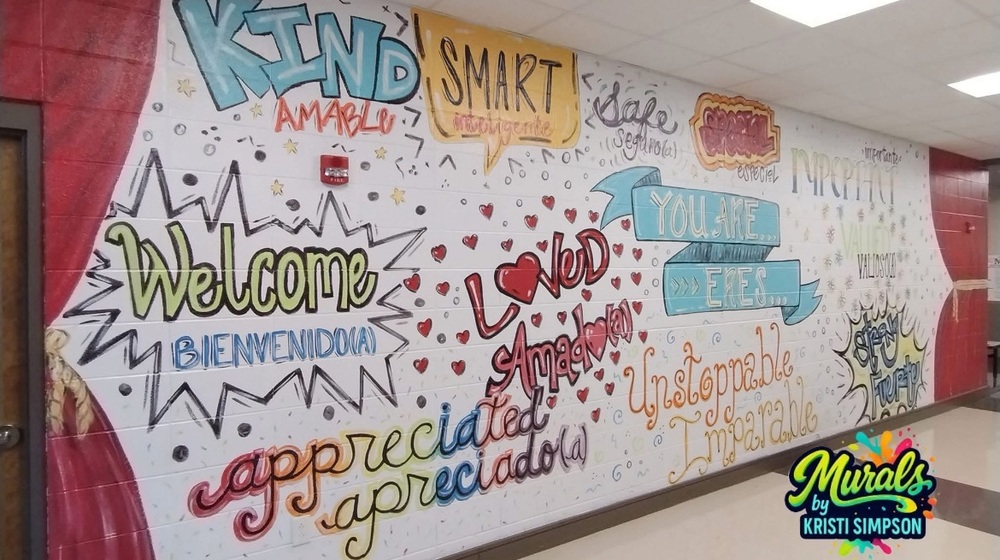 KIND
AMABLE
SMART
inteligente
Safe
seguro(a)
SPECIAL
especial
importante
VALUED
VALIOSO(A)
Welcome
BIENVENIDO(A)
LOVED
Amado(a)
YOU ARE...
>>> ERES...
Unstoppable
Imparable
STRONG
Fuerte
appreciated
apreciado(a)
Murals
by
KRISTI SIMPSON